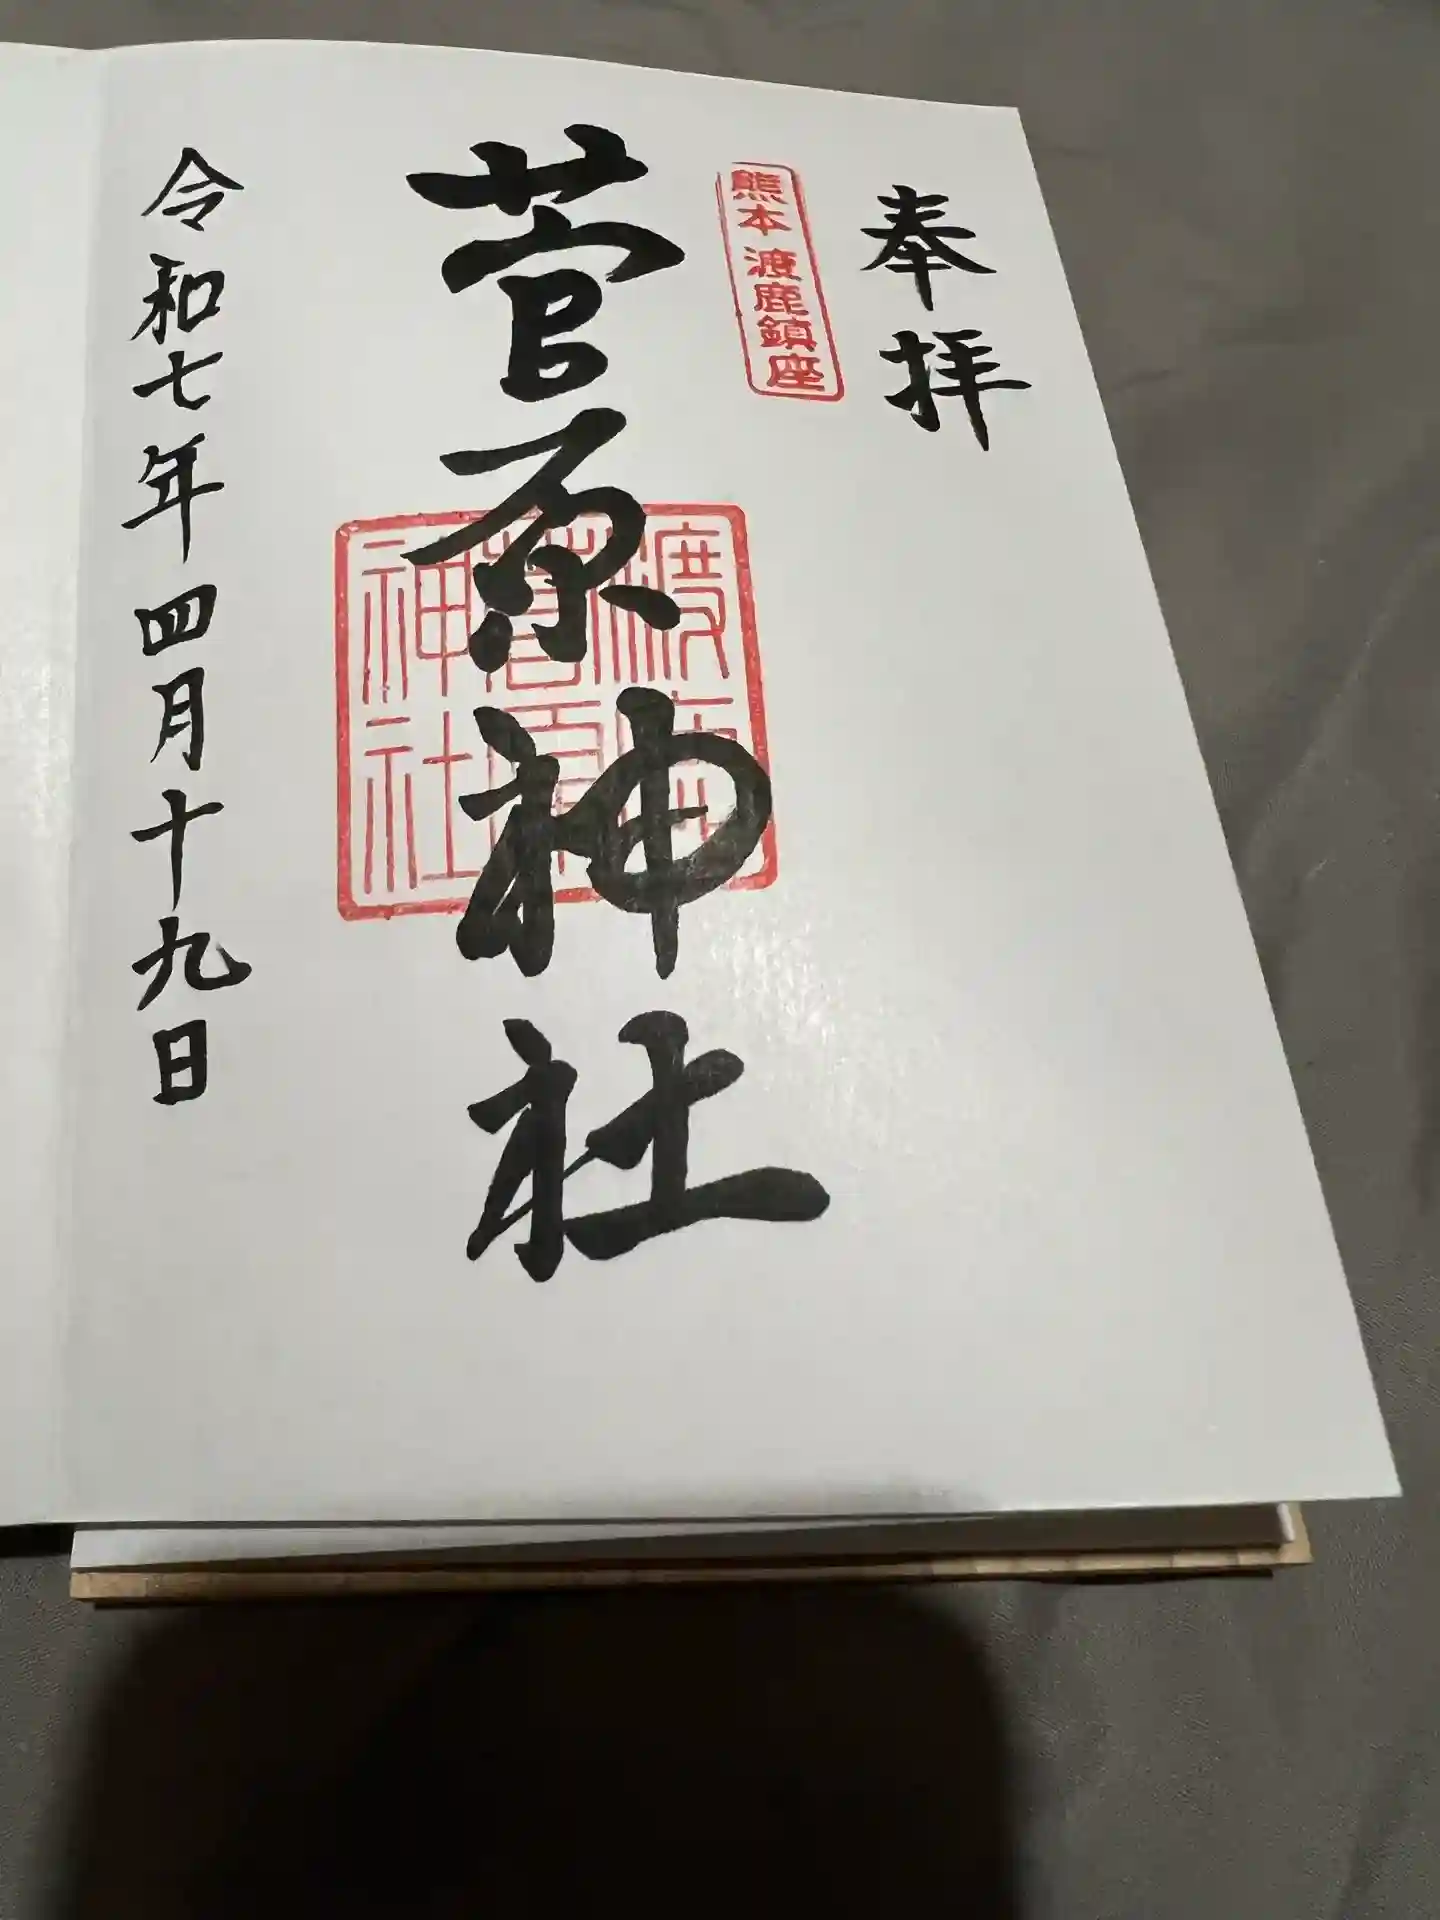 奉拝
熊本 渡鹿鎮座
菅原神社
渡鹿
菅原
神社
令和七年四月十九日